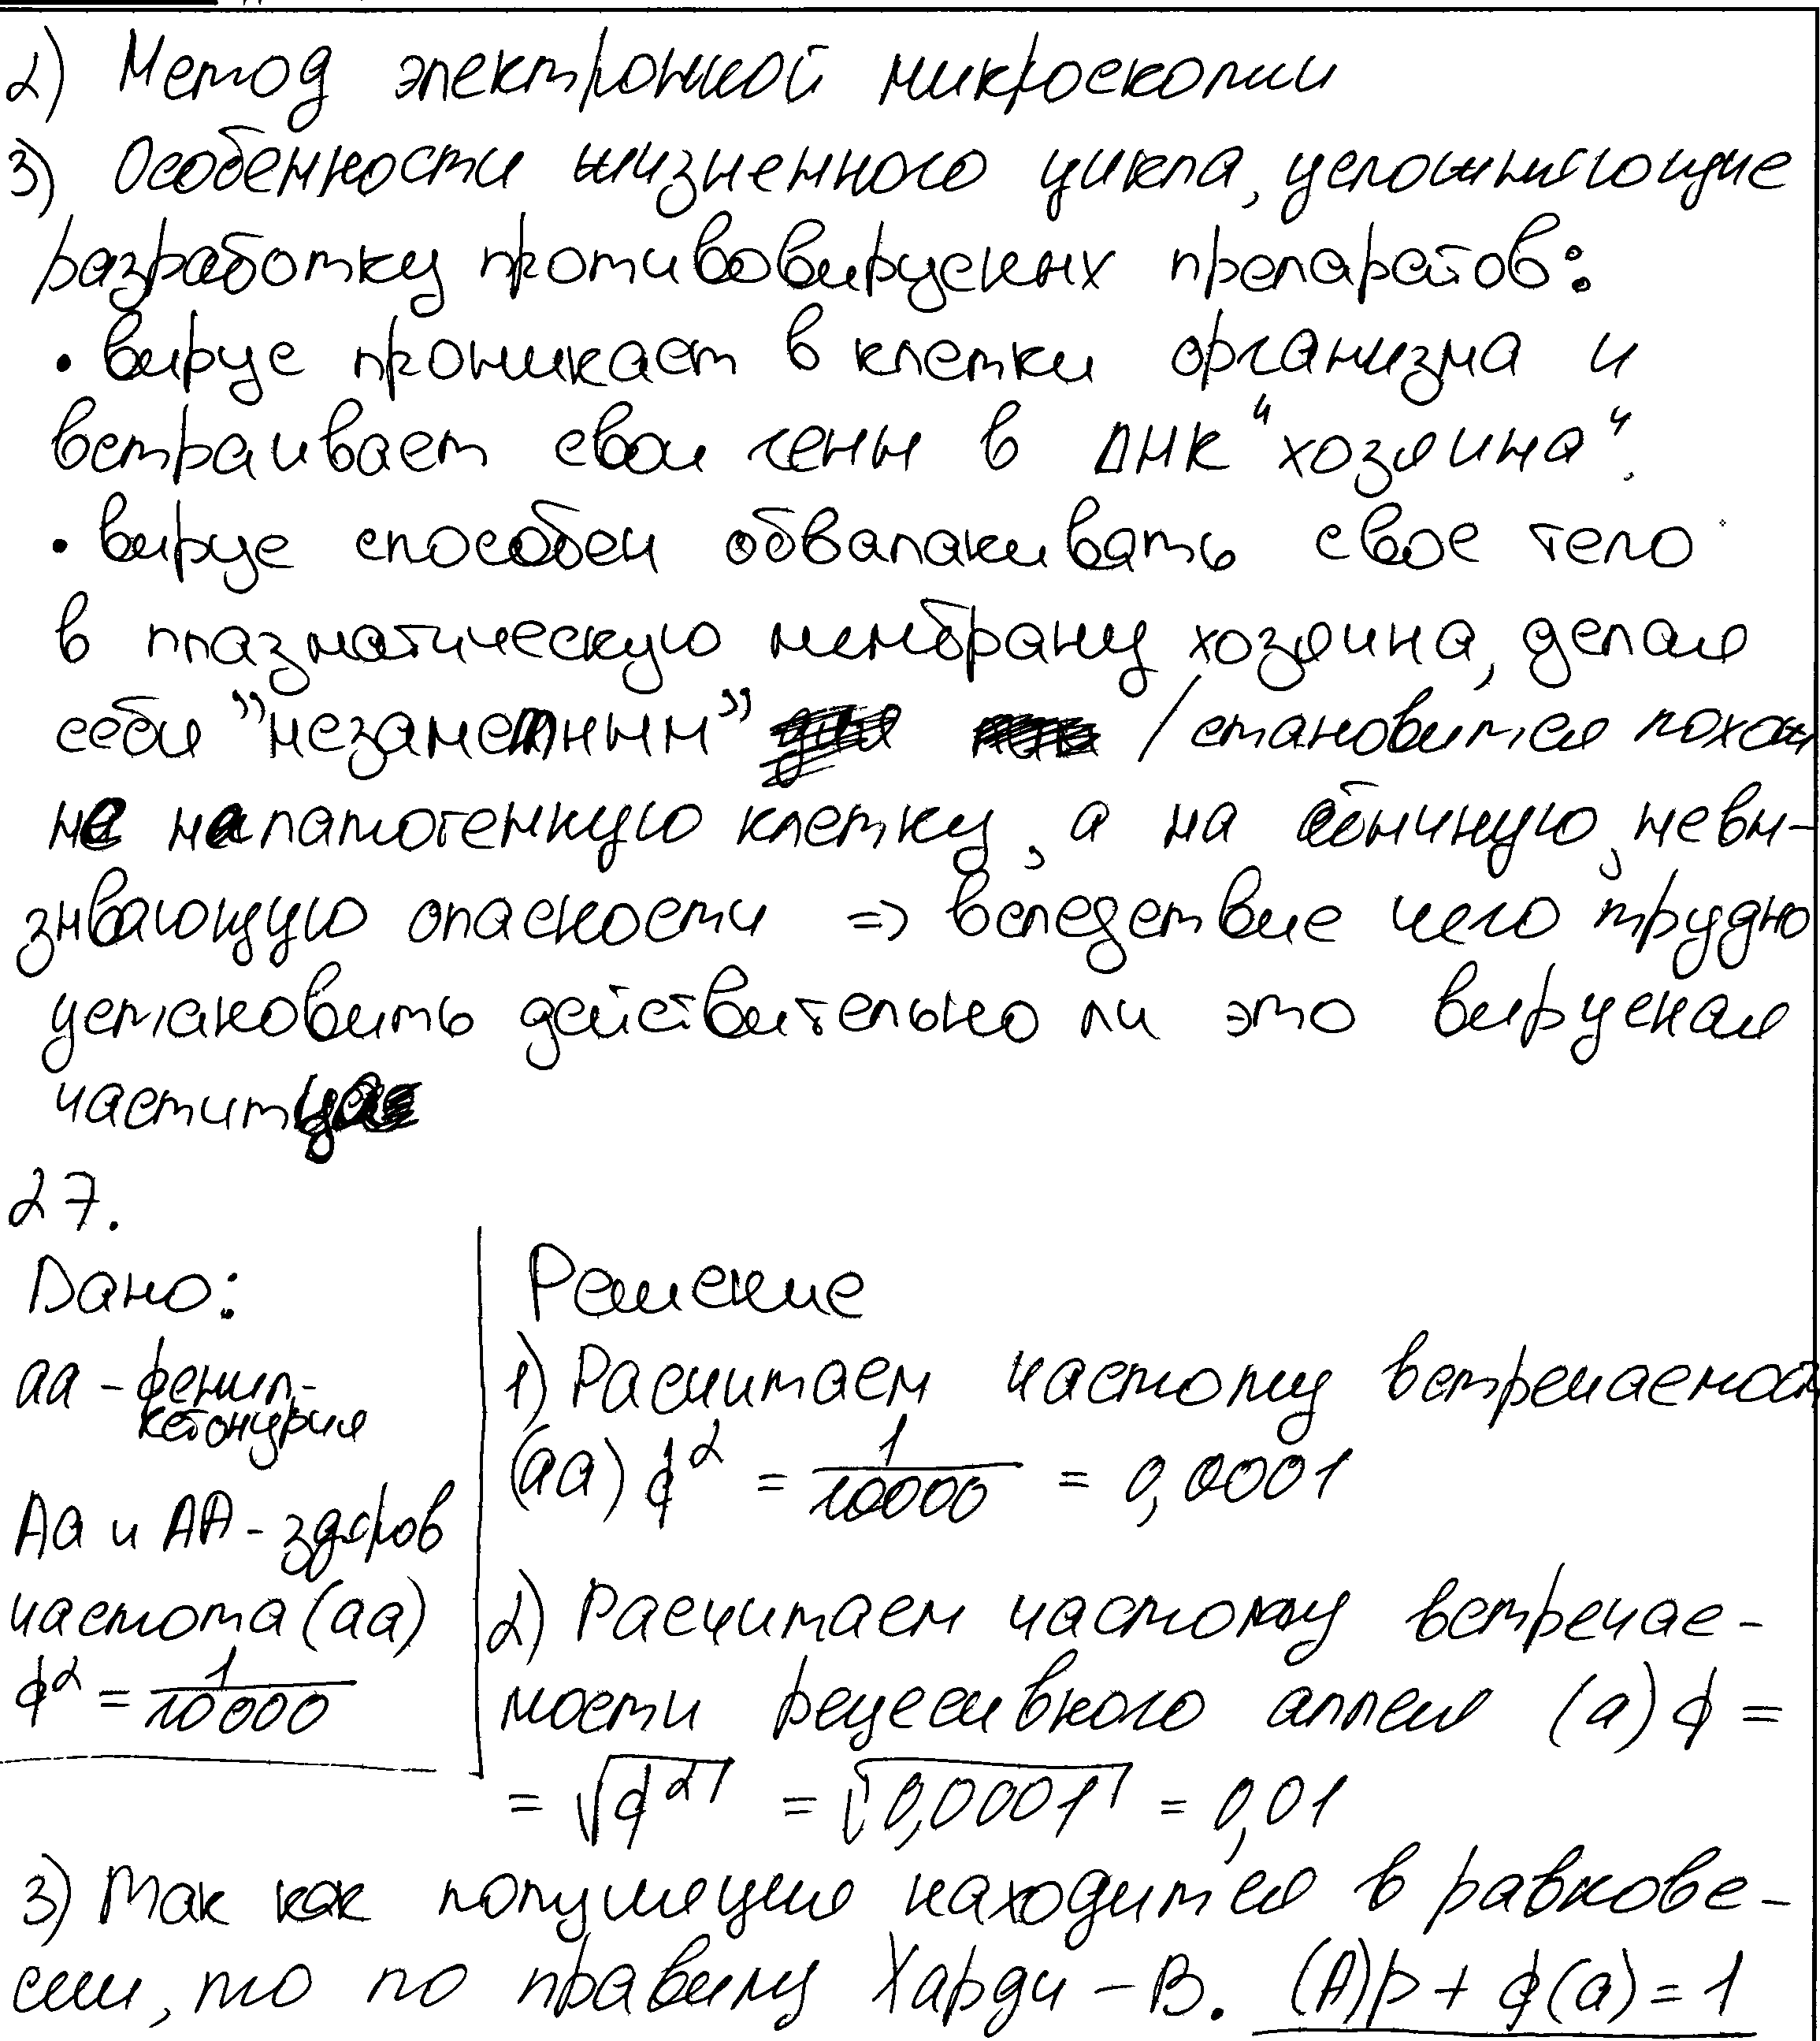 2) Метод электронной микроскопии
3) Особенности жизненного цикла, усложняющие
разработку противовирусных препаратов:
• вирус проникает в клетки организма и
встраивает свои гены в ДНК "хозяина".
• вирус способен обвалакивать свое тело
в плазматическую мембрану хозяина, делая
себя "незаметным" / становится похож
не на патогенную клетку, а на обычную, невы-
зывающую опасности => вследствие чего трудно
установить действительно ли это вирусная
частица
27.
Дано:
аа - фенил-
кетонурия
Аа и АА - здоров
частота (аа)
q² = 1/10000
Решение
1) Расчитаем частоту встречаемост
(аа) q² = 1/10000 = 0,0001
2) Расчитаем частоту встречае-
мости рецессивного аллея (а) q =
= √q² = √0,0001 = 0,01
3) Так как популяция находится в равнове-
сии, то по правилу Харди - В. (А)p + q(а) = 1